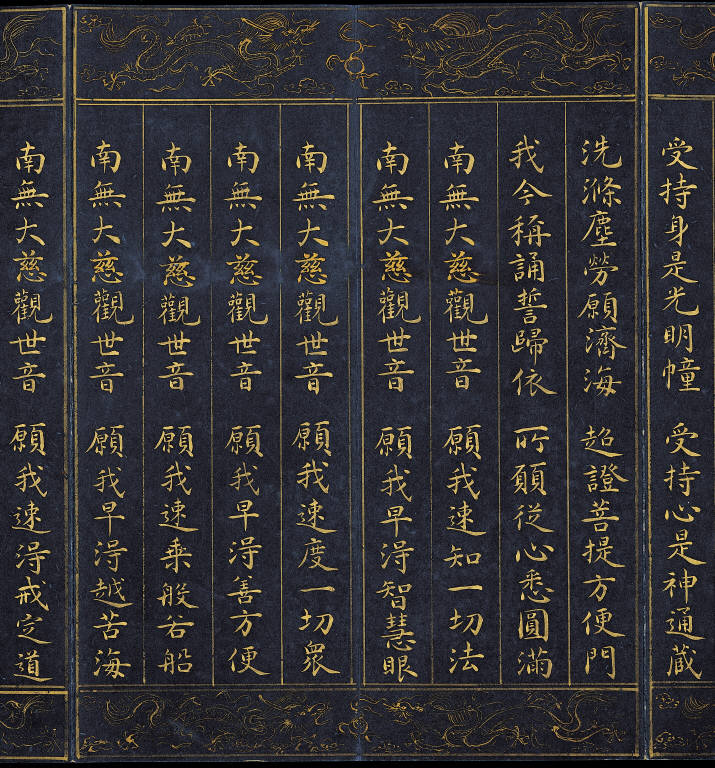 受持身是光明幢　受持心是神通藏
洗滌塵勞願濟海　超證菩提方便門
我今稱誦誓歸依　所願從心悉圓滿
南無大慈觀世音　願我速知一切法
南無大慈觀世音　願我早得智慧眼
南無大慈觀世音　願我速度一切眾
南無大慈觀世音　願我早得善方便
南無大慈觀世音　願我速乘般若船
南無大慈觀世音　願我早得越苦海
南無大慈觀世音　願我速得戒定道